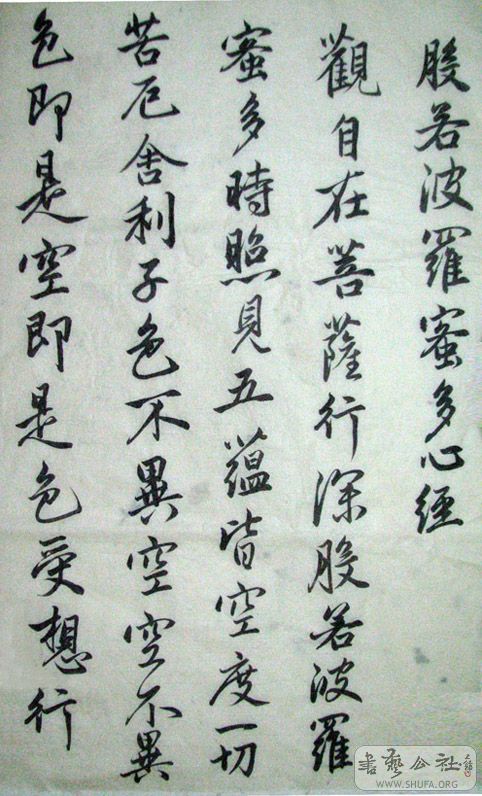 般若波羅蜜多心經
觀自在菩薩行深般若波羅
蜜多時照見五蘊皆空度一切
苦厄舍利子色不異空空不異
色即是空即是色受想行
書藝公社
WWW.SHUFA.ORG